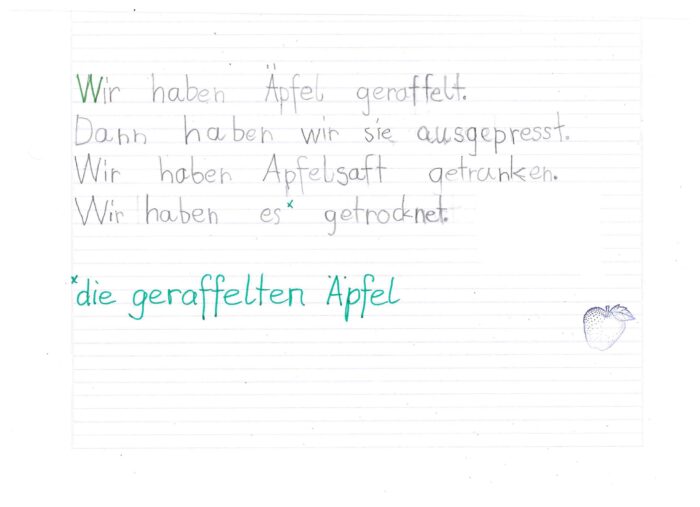 Wir haben Äpfel geraffelt.
Dann haben wir sie ausgepresst.
Wir haben Apfelsaft getrunken.
Wir haben es* getrocknet.
*die geraffelten Äpfel